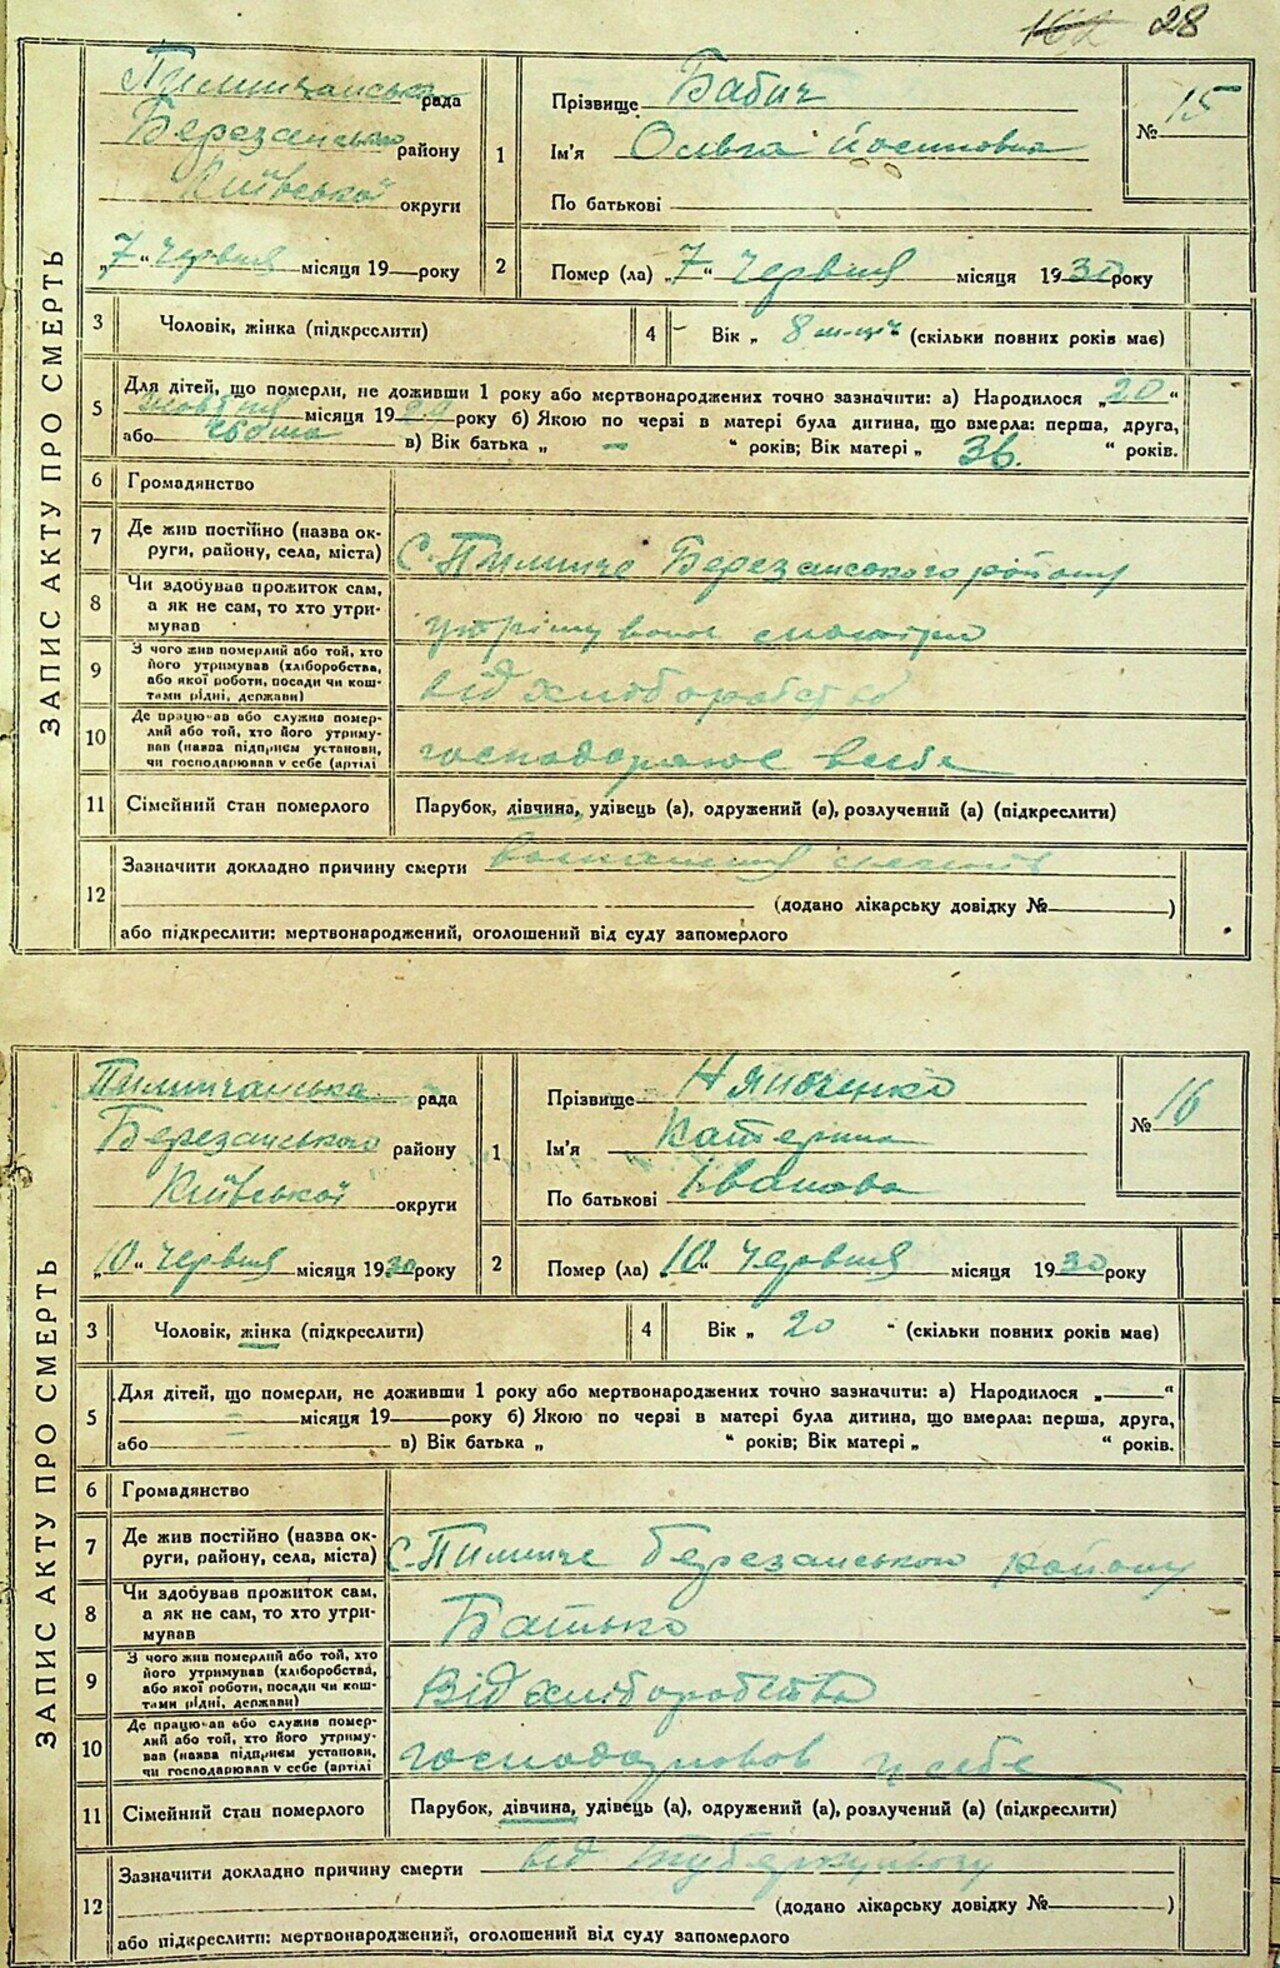 162 28
ЗАПИС АКТУ ПРО СМЕРТЬ
Пилипчанська рада
Березансько району
Київської округи
„7“ червня місяця 19 року
1
Прізвище Бабич
Ім'я Ольга Йосиповна
По батькові
№ 15
2
Помер (ла) „7“ червня місяця 1930 року
3 Чоловік, жінка (підкреслити)
4 Вік „ 8 м-ців “ (скільки повних років має)
5 Для дітей, що померли, не доживши 1 року або мертвонароджених точно зазначити: а) Народилося „20“
місяця 19 року б) Якою по черзі в матері була дитина, що вмерла: перша, друга,
або в) Вік батька „ – “ років; Вік матері „ 36. “ років.
6 Громадянство
7 Де жив постійно (назва округи, району, села, міста) С. Пилипче Березанського району
8 Чи здобував прожиток сам, а як не сам, то хто утримував
9 З чого жив померлий або той, хто його утримував (хліборобства, або якої роботи, посади чи коштами рідні, держави) від хліборобства
10 Де працював або служив померлий або той, хто його утримував (назва підприєм установи, чи господарював у себе (артілі господарює в себе
11 Сімейний стан померлого Парубок, дівчина, удівець (а), одружений (а), розлучений (а) (підкреслити)
12 Зазначити докладно причину смерти
(додано лікарську довідку № )
або підкреслити: мертвонароджений, оголошений від суду запомерлого
ЗАПИС АКТУ ПРО СМЕРТЬ
Пилипчанська рада
Березанського району
Київської округи
„10“ червня місяця 1930 року
1
Прізвище
Ім'я Катерина
По батькові Іванова
№ 16
2
Помер (ла) „10“ червня місяця 1930 року
3 Чоловік, жінка (підкреслити)
4 Вік „ 20 “ (скільки повних років має)
5 Для дітей, що померли, не доживши 1 року або мертвонароджених точно зазначити: а) Народилося „ “
місяця 19 року б) Якою по черзі в матері була дитина, що вмерла: перша, друга,
або в) Вік батька „ “ років; Вік матері „ “ років.
6 Громадянство
7 Де жив постійно (назва округи, району, села, міста) С. Пилипче березанського району
8 Чи здобував прожиток сам, а як не сам, то хто утримував Батько
9 З чого жив померлий або той, хто його утримував (хліборобства, або якої роботи, посади чи коштами рідні, держави) Від хліборобства
10 Де працював або служив померлий або той, хто його утримував (назва підприєм установи, чи господарював у себе (артілі у себе
11 Сімейний стан померлого Парубок, дівчина, удівець (а), одружений (а), розлучений (а) (підкреслити)
12 Зазначити докладно причину смерти від туберкульозу
(додано лікарську довідку № )
або підкреслити: мертвонароджений, оголошений від суду запомерлого